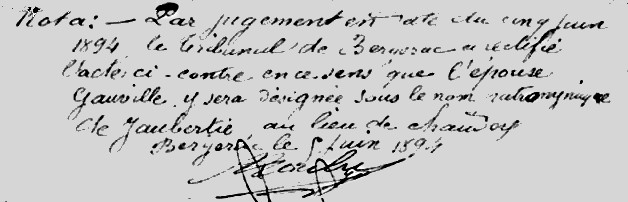 Nota: — Par jugement en date du cinq juin
1894 le tribunal de Bergerac a rectifié
l'acte ci-contre en ce sens que l'épouse
Gauville y sera désignée sous le nom patronymique
de Jaubertie au lieu de
Bergerac le 5 juin 1894